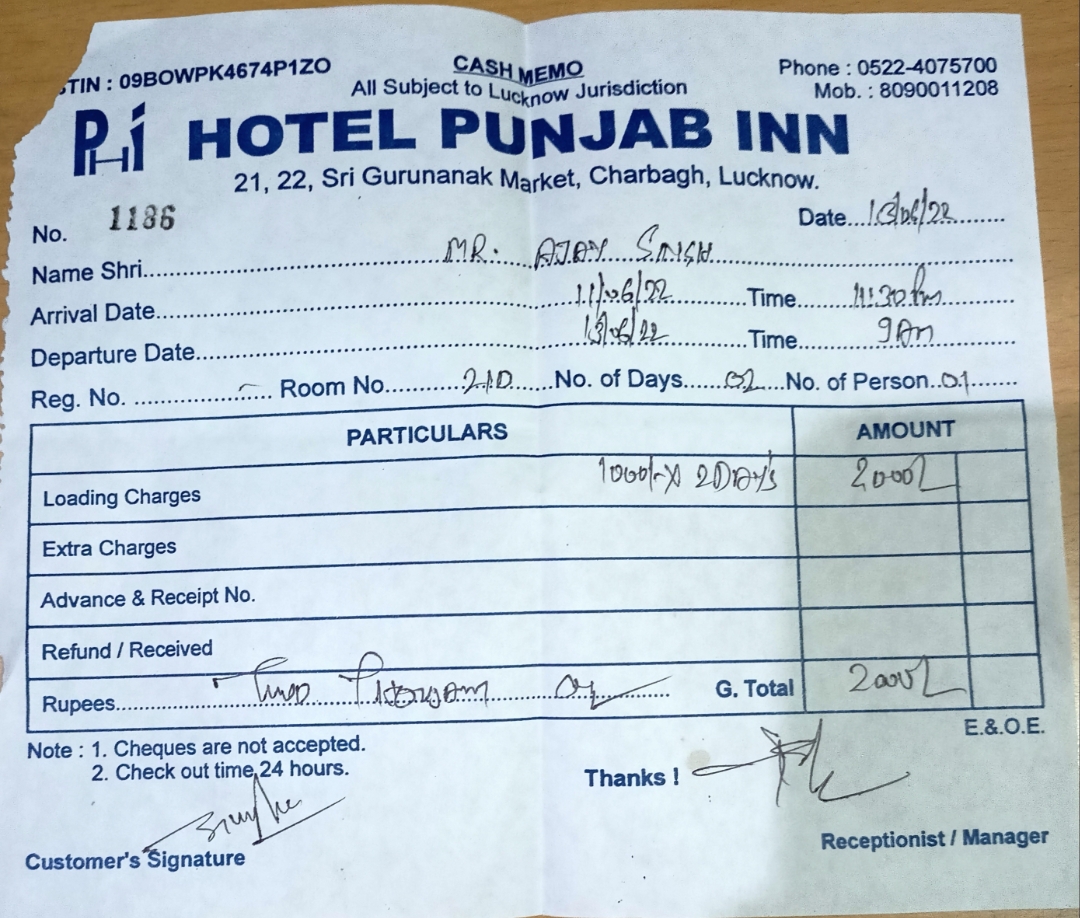 TIN : 09BOWPK4674P1ZO
CASH MEMO
Phone : 0522-4075700
All Subject to Lucknow Jurisdiction
Mob. : 8090011208
PHI HOTEL PUNJAB INN
21, 22, Sri Gurunanak Market, Charbagh, Lucknow.
No. 1186 Date...13/06/22.......
Name Shri...MR. AJAY SINGH...
Arrival Date...11/06/22...Time...11:30 Pm...
Departure Date...13/06/22...Time...9 Am...
Reg. No. ... Room No...210...No. of Days...02...No. of Person..01...
PARTICULARS AMOUNT
Loading Charges 1000/- X 2 DAY's 2000/-
Extra Charges
Advance & Receipt No.
Refund / Received
Rupees... Thousand only... G. Total 2000/-
E.&.O.E.
Note : 1. Cheques are not accepted.
2. Check out time 24 hours.
Thanks !
Customer's Signature
Receptionist / Manager